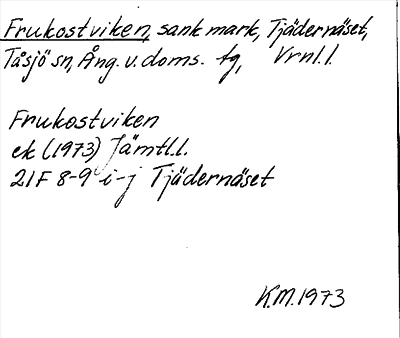 Frukostviken, sank mark, Tjädernäset,
Tåsjö sn, Ång. v. doms. tg, Vrnl.l.
Frukostviken
ek (1973) Jämtl.l.
21F 8-9 i-j Tjädernäset
K.M. 1973